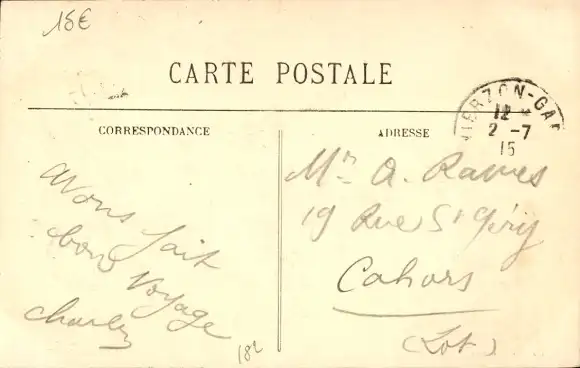 15€
CARTE POSTALE
CORRESPONDANCE
ADRESSE
VIERZON-GAR
12
2 -7
15
Avons fait
bon Voyage
Charles
Mr A. Rames
19 Rue St Géry
Cahors
(Lot)
182